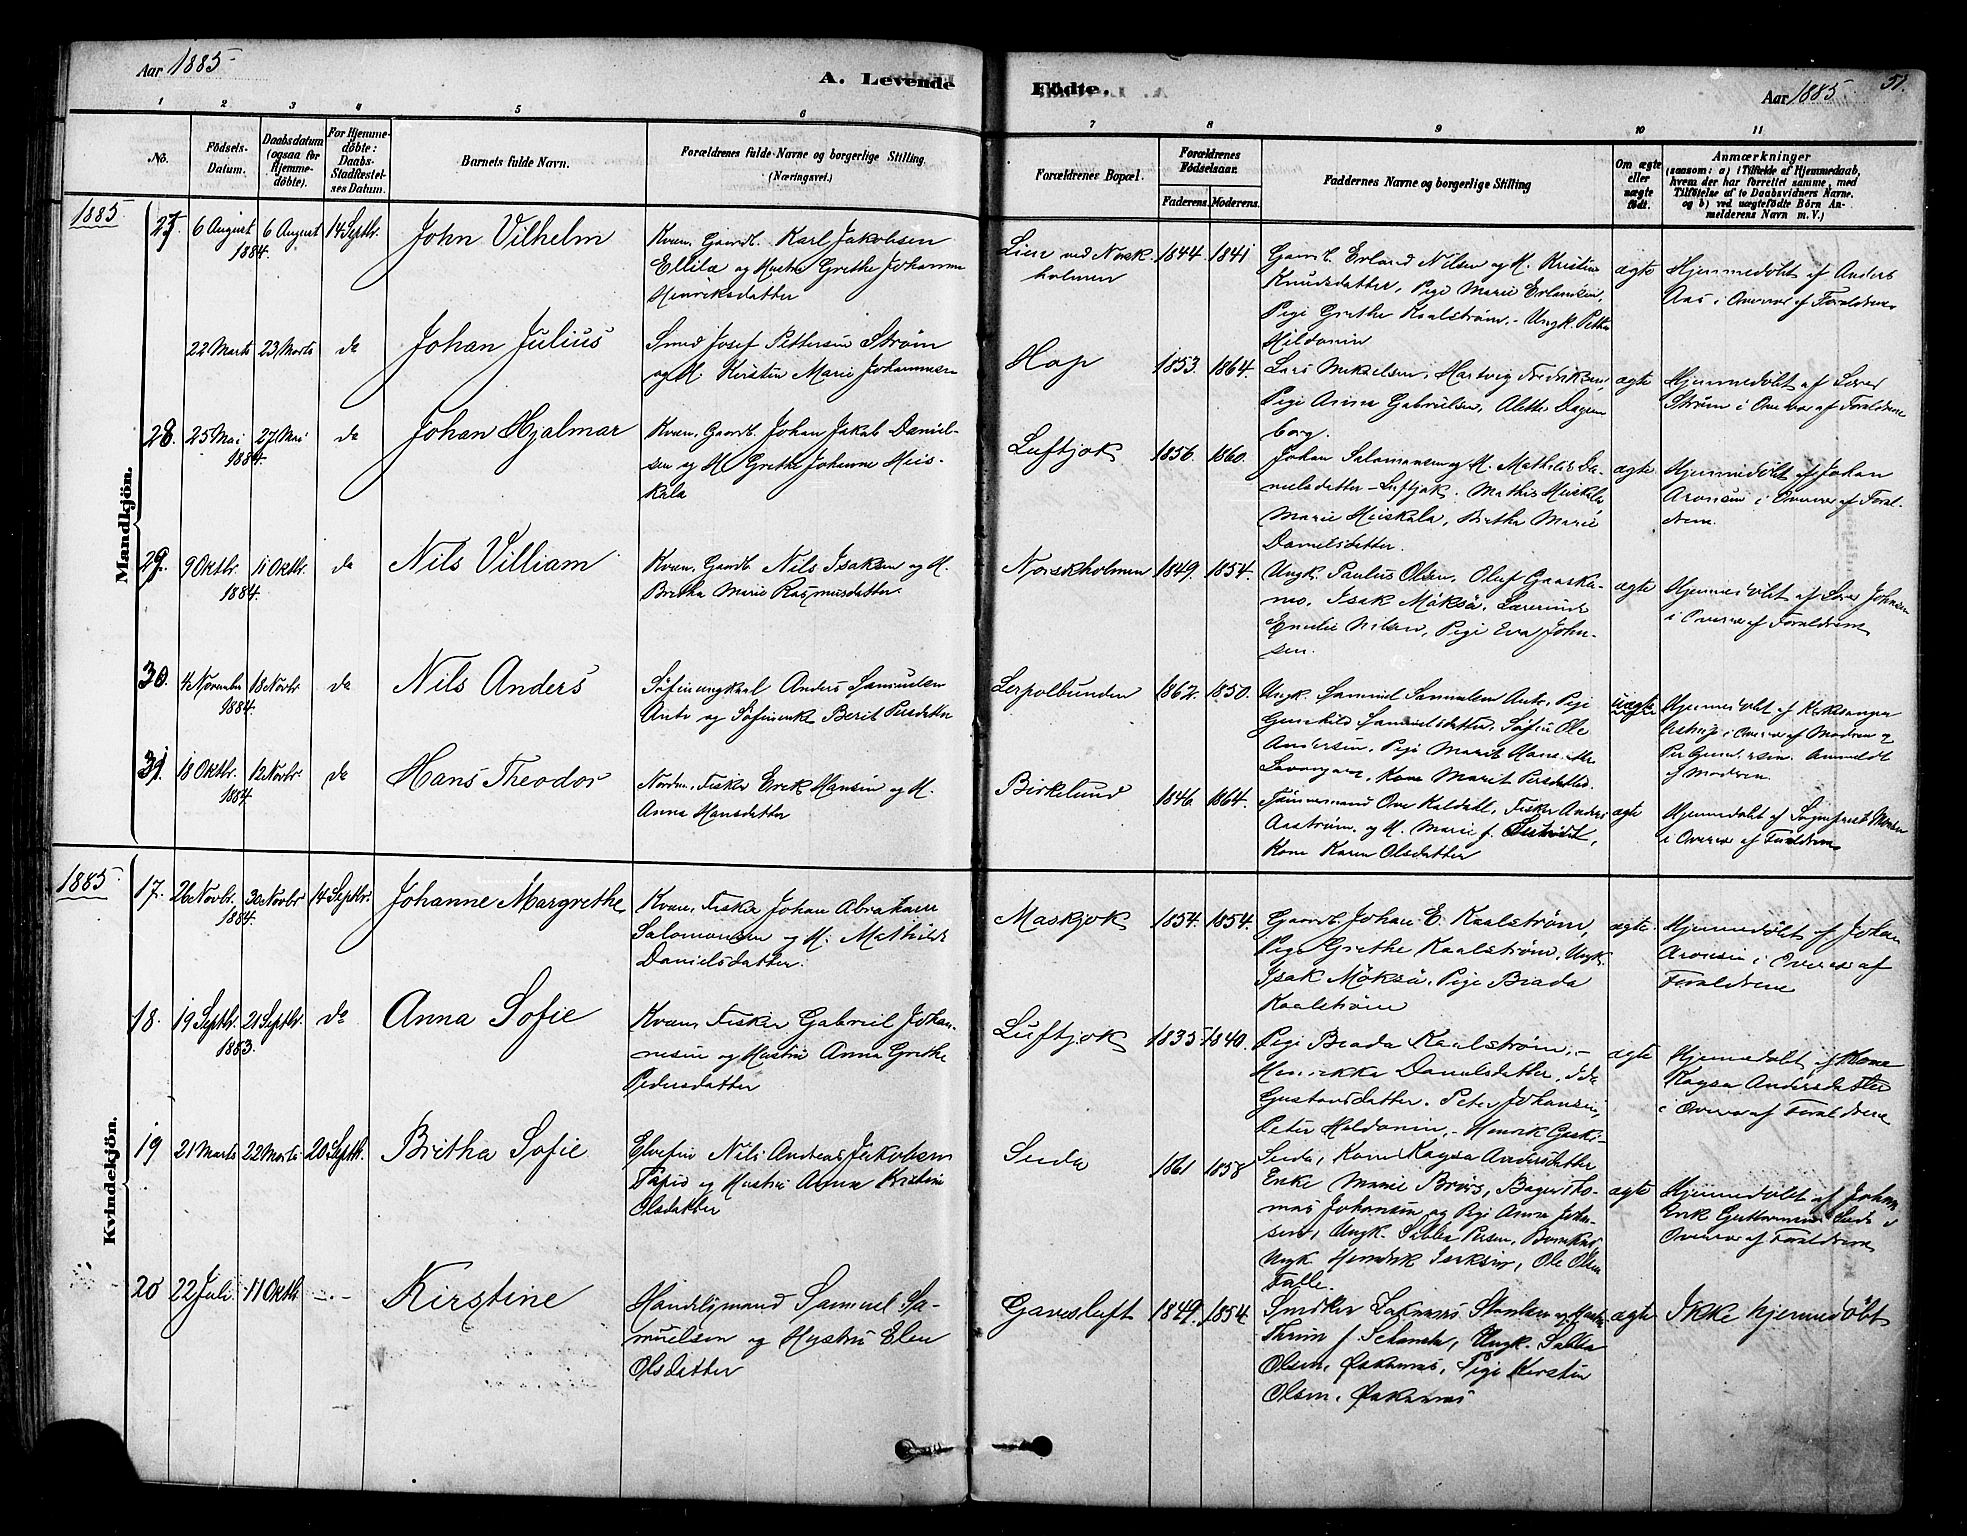 Aar 1885
A. Levende
Födte.
Aar 1885
51.
1 2 3 4 5 6 7 8 9 10 11
No.
Födsels-
Datum.
Daabsdatum
(ogsaa for
Hjemme-
döbte).
For Hjemme-
döbte:
Daabs-
Stadfæstel-
ses Datum.
Barnets fulde Navn.
Forældrenes fulde Navne og borgerlige Stilling.
(Næringsvei.)
Forældrenes Bopæl.
Forældrenes
Födselsaar.
Faderens. Moderens.
Faddernes Navne og borgerlige Stilling
Om ægte
eller
uægte
födt.
Anmærkninger
(saasom: a) i Tilfælde af Hjemmedaab,
hvem der har forrettet samme, med
Tilföielse af to Daabsvidners Navne.
og b) ved uægtefödte Börn An-
melderens Navn m. V.)
Mandkjön.
1885
27 6 August 1884. 6 August 14 Septbr.
John Vilhelm
Kvæn, Gaardb. Karl Jakobsen
Ellila og Hustru Grethe Johanne
Henriksdatter
Lien ved Norsk-
holmen
1844. 1841
Gaardb. Erland Nilsen og H. Kristine
Knudsdatter, Pige Marie Erlandsen,
Pige Grethe Kaalstrøm. - Ungk. Petter
Hildonin
ægte
Hjemmedøbt af Anders
Aas i Overvær af Forældrene
22 Marts 23 Marts da
Johan Julius
Smed Josef Pettersen Strøm
og H. Kirsten Marie Johannesen
Hop
1853. 1864.
Lars Mikaelsen, Hartvig Fredriksen,
Pige Anna Gabrielsen, Alette Dagen-
borg.
ægte
Hjemmedøbt af Lærer
Strøm i Overvær af Forældrene
28. 25 Mai 1884. 27 Mai da
Johan Hjalmar
Kvæn, Gaardb. Johan Jakob Daniel-
sen og H. Grethe Johanne Heis-
kala
Luftjok
1856. 1860.
Johan Salomonsen og H. Mathilde Da-
nielsdatter - Luftjok. Mathis Heiskala
Marie Heiskala, Bretha Marie
Danielsdatter.
ægte.
Hjemmedøbt af Johan
Aronsen i Overvær af Foræl-
drene.
29. 9 Oktbr. 1884. 11 Oktbr. da
Nils Villiam
Kvæn, Gaardb. Nils Isaksen og H.
Bretha Marie Rasmusdatter.
Norskholmen
1849. 1854.
Ungk. Paulus Olsen, Oluf Gaaska-
mo, Isak Møksø, Lærerinde
Emelie Nilsen, Pige Eva John-
sen.
ægte
Hjemmedøbt af Lærer Johnsen
i Overvær af Forældrene
30. 4 Novembr 1884. 18 Novbr. da
Nils Anders
Søfinungkarl Anders Samuelsen
Anti og Søfinenke Berit Persdatter
Lerpolbunden
1862. 1850.
Ungk. Sammul Samuelsen Anti, Pige
Gunhild Samuelsdatter, Søfin Ole
Andersen, Pige Marit Hans.
Kone Marit Persdatter.
uægte
Hjemmedøbt af Kirkesanger
i Overvær af Modren og
Anmeldt
af Modren.
31. 18 Oktbr. 1884. 12 Novbr. da
Hans Theodor
Nordm., Fisker Erik Hansen og H.
Anna Hansdatter
Birkelund
1846. 1864.
Tømmermand Ove Kaldahl, Fisker Anders
Aastrøm, og H. Marie f.
Kone Karen Olsdatter
ægte
Hjemmedøbt af Sogneprest
i Overvær af Forældrene
Kvindekjön.
1885
17. 26 Novbr. 1884. 30 Novbr 14 Septbr.
Johanne Margrethe
Kvæn, Fisker Johan Abraham
Salomonsen og H. Mathilde
Danielsdatter.
Maskjok
1854. 1854.
Gaardb. Johan E. Kaalstrøm,
Pige Grethe Kaalstrøm, Ungk.
Isak Møksø, Pige Brada
Kaalstrøm
ægte.
Hjemmedøbt af Johan
Aronsen i Overvær af
Forældrene
18. 19 Septbr. 1883. 21 Septbr. da
Anna Sofie
Kvæn, Fisker Gabriel Johan-
nesen og Hustru Anna Grethe
Pedersdatter
Luftjok
1835 1840.
Pige Brada Kaalstrøm, -
Henrikka Danielsdatter, Ida
Gustavsdatter. Peter Johansen,
Peter Haldonin, - Henrik
ægte
Hjemmedøbt af Kone
Kaysa Andersdatter
i Overvær af Forældrene
19 21 Marts 22 Marts 20 Septbr.
Bretha Sofie
Elvefin Nils Andreas Jakobsen
og Hustru Anna Kristine
Olsdatter
Seida
1861 1858
Seida, Kone Kaysa Andersdatter
Enke Marie Brors, Bager Tho-
mas Johansen og Pige Anna Johan-
sen, Ungk. Sabba Persen,
Ungk Hendrik Isaksen, Ole Olsen
ægte
Hjemmedøbt af Johan
Erik Guttormsen Seida i
Overvær af Forældrene
20 22 Juli 11 Oktbr. -.-
Kirstine
Handelsmand Samuel Sa-
muelsen og Hustru Elen
Olsdatter
Gavesluft
1849. 1854.
Smidker og Hustru
f. Ungk. Sabba
Olsen, Pige Kirsten
Olsen,
ægte
Ikke hjemmedøbt